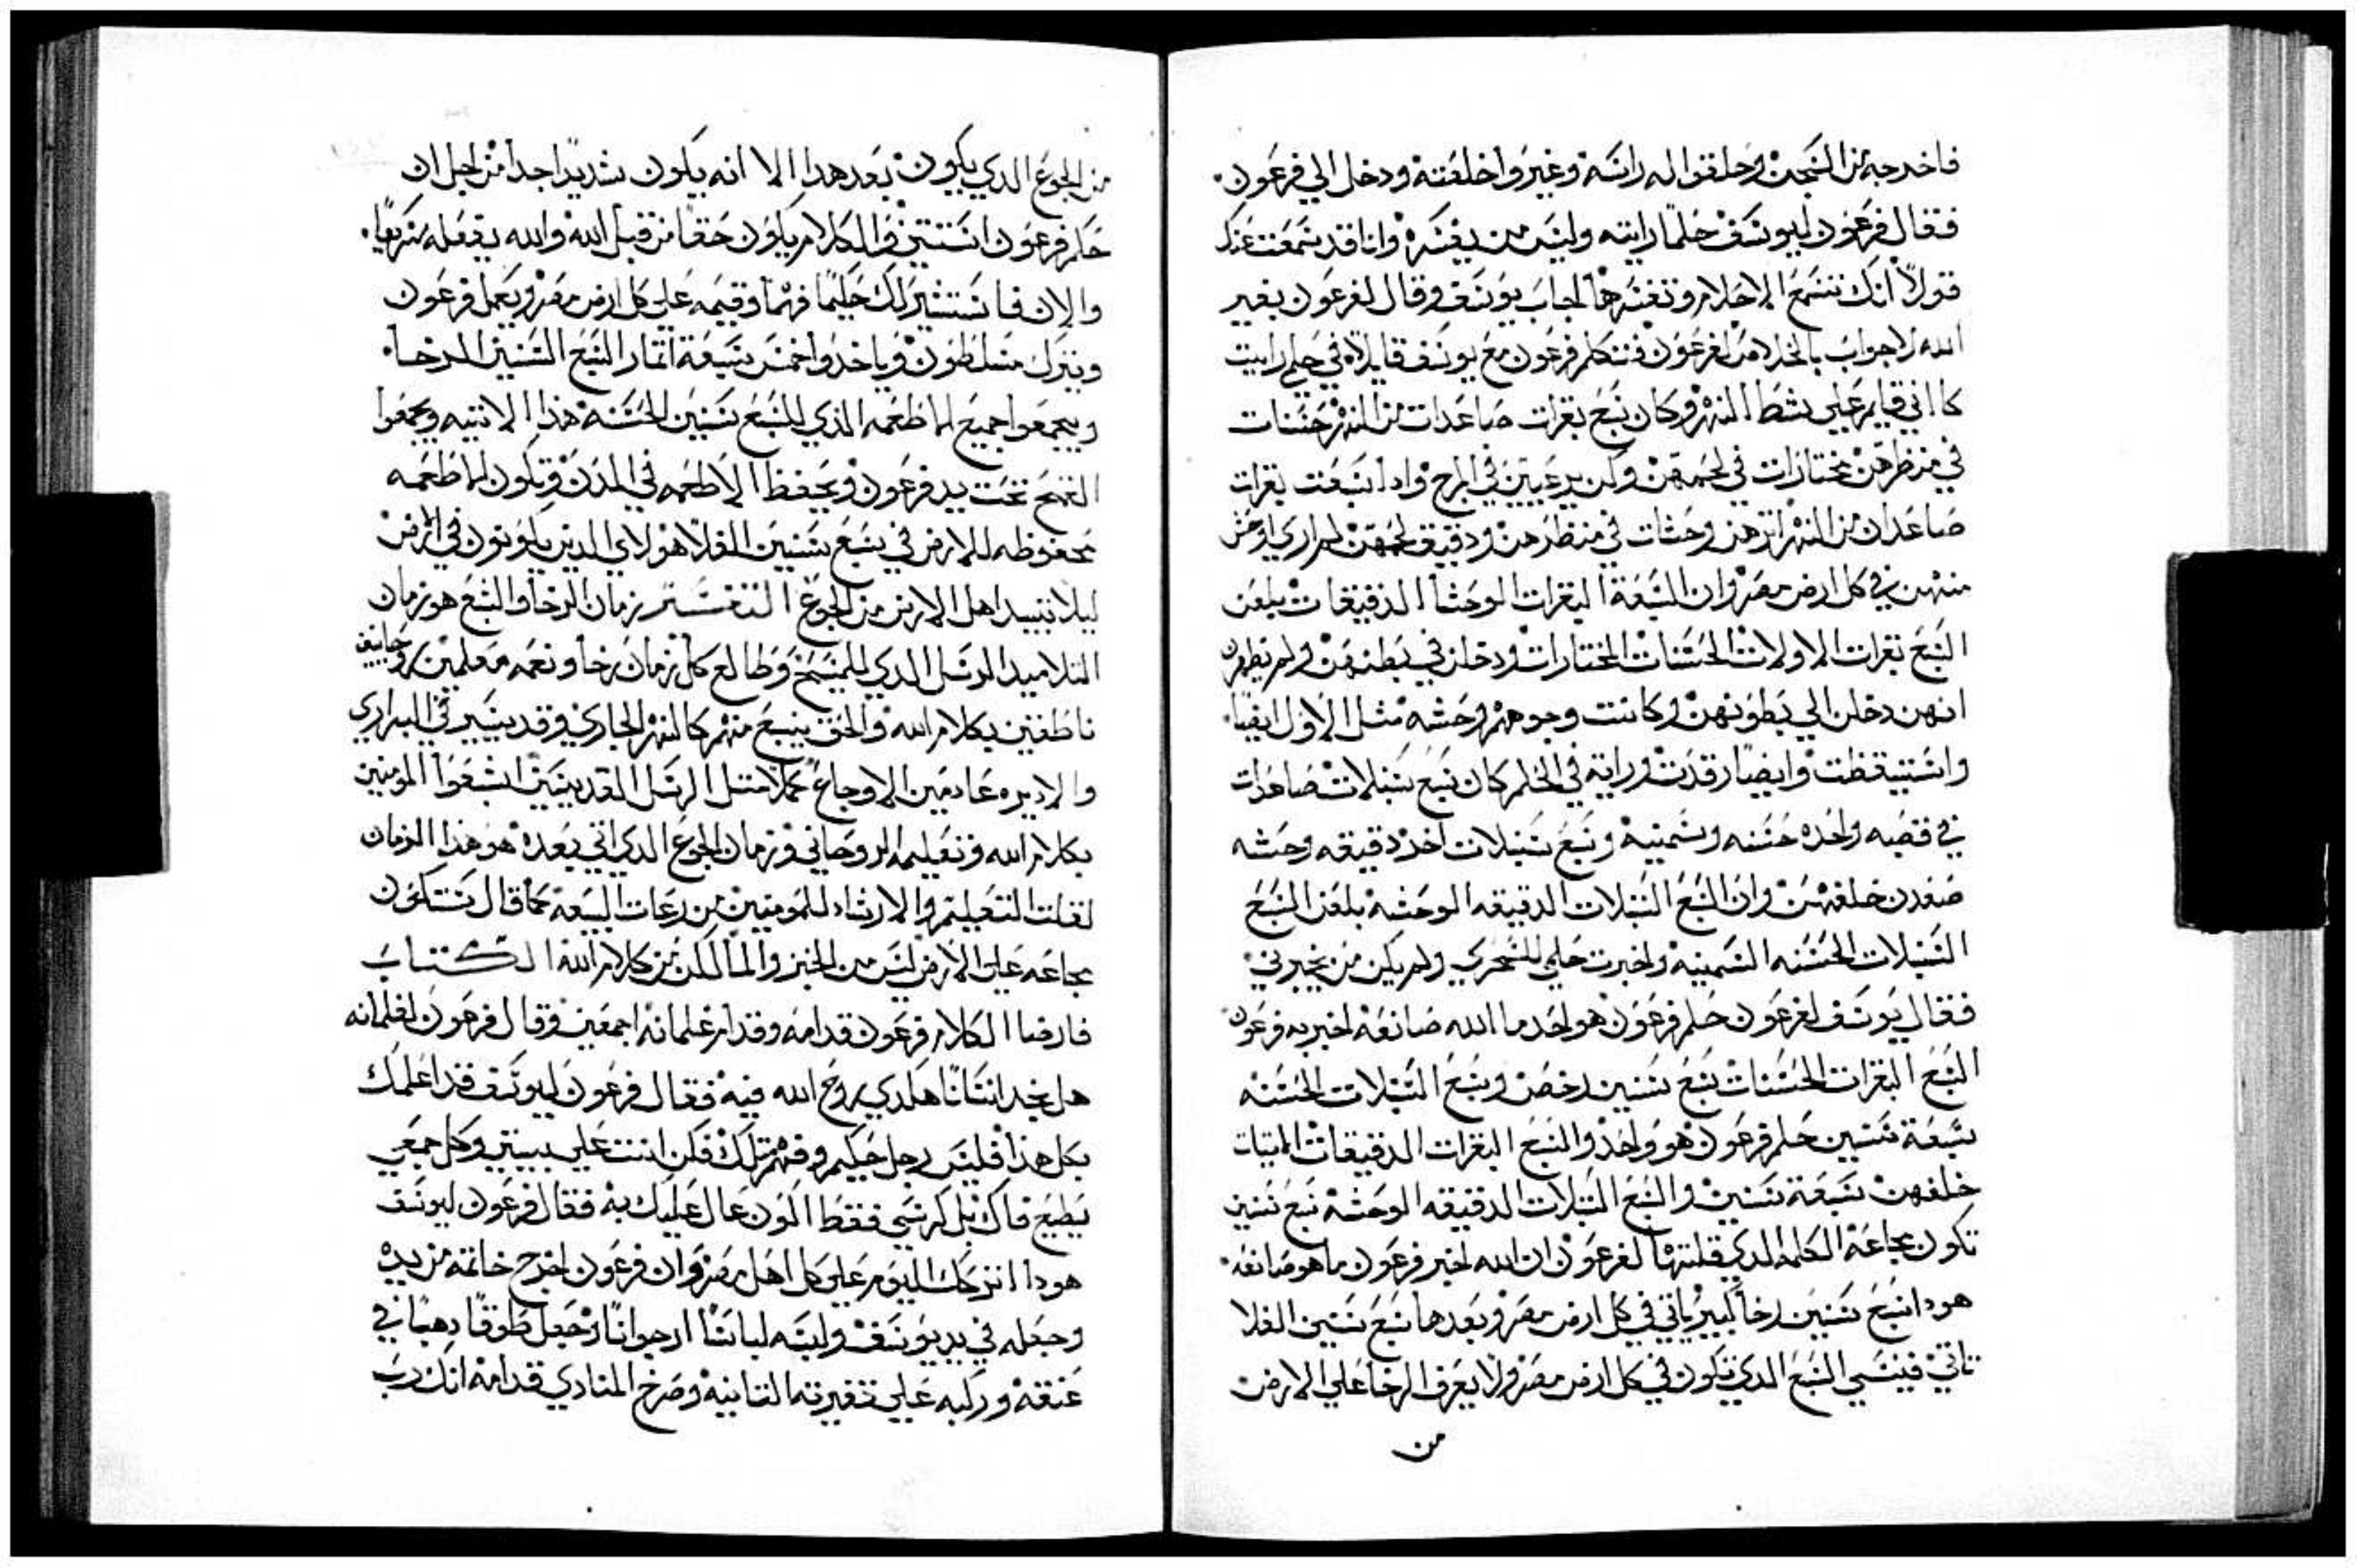 فاخرجه من السجن وحلقوا له راسه وغيروا خلعته ودخل الي فرعون
فقال فرعون ليوسف حلماً رايته وليس من يفسره وانا قد سمعت عنك
قولاً انك تسمع الاحلام وتفسرها اجاب يوسف وقال لفرعون بغير
الله لا جواب بالخلاص لفرعون فتكلم فرعون مع يوسف قايلاً في حلمي رايت
كااني قايم علي شط النهر وكان سبع بقرات صاعدات من النهر حسنات
في منظرهن مختارات في لحمهن وكن يرعيين في المرج واداً سبعت بقرات
صاعدات من النهر اترهن وحشات في منظرهن ودقيق لحمهن لم اري اوحش
منهن في كل ارض مصر وان السبعة البقرات الوحشا الدقيقات بلعن
السبع بقرات الاولات الحسنات المختارات ودخلن في بطنهن ولم يظهرن
انهن دخلن الي بطونهن وكانت وجوههم وحشه مثل الاول ايضاً
واستيقظت وايضاً رقدت ورايته في الحلم كان سبع سنبلات صاعدات
في قصبه واحده حسنه وسمينه وسبع سنبلات اخر دقيقه وحشه
صعدن خلفهن وان السبع السنبلات الدقيقه الوحشه بلعن السبع
السنبلات الحسنه السمينه واخبرت حلمي للسحري ولم يكن من يخبرني
فقال يوسف لفرعون حلم فرعون هو واحد ما الله صانعه اخبر به فرعون
السبع البقرات الحسنات سبع سنين رخص وسبع السنبلات الحسنه
سبعة سنين حلم فرعون هو واحد والسبع البقرات الدقيقات
خلفهن سبعة سنين والسبع السنبلات الدقيقه الوحشه سبع سنين
تكون مجاعة الكلمه الدي قلتها لفرعون ان الله اخبر فرعون ما هو صانعه
هودا سبع سنين رخا كبير ياتي في كل ارض مصر وبعدها سبع سنين الغلا
تاتي فينسي السبع الدي تكون في كل ارض مصر ولا يعرف الرخا علي الارض
من
من الجوع الدي يكون بعد هدا الا انه يكون شديداً جداً من اجل ان
حلم فرعون اتنتين والكلام يكون حقاً من قبل الله والله يفعله سريعاً
والان فاستشير لك حكيماً فهماً وقيمه علي كل ارض مصر ويعمل فرعون
ويترك مسلطون وياخدوا خمس سبعة اتمار السبع السنين الرخا
ويجمعوا جميع الماطعمه الذي للسبع سنين الحسنه هذا الاتيه ويجمعوا
القمح تحت يد فرعون ويحفظ الاطعمه في المدن وتكون الماطعمه
محفوظه للارض في سبع سنين الغلا هولاي الدين يكونون في ارض
ليلا تبيد اهل الارض من الجوع التفسير زمان الرخا والسبع هو زمان
التلاميد الرسل الدي للمسيح وطالع كل زمان رخا ونعمه معلمين روحانيين
ناطقين بكلام الله والحق ينبع منهم كالنهر الجاري وقديسين في البراري
والاديره عادمين الاوجاع عملاً متل الرسل القديسين اشبعوا المومنين
بكلام الله وتعليمه الروحاني وزمان الجوع الدي اتي بعده هو هذا الزمان
لقلت التعليم والارشاد للمومنين من رعات البيعه كما قال ستكون
مجاعه علي الارض ليس من الخبز والما لكن من كلام الله الكتاب
فارضا الكلام فرعون قدامه وقدام غلمانه اجمعين وقال فرعون لغلمانه
هل نجد انساناً هكدي روح الله فيه فقال فرعون ليوسف قد اعلمك
بكل هذا فليس رجل حكيم وفهم متلك فكن انت علي بيتي وكل جمعي
يطيع فاك بل كرسي فقط اكون عال عليك به فقال فرعون ليوسف
هودا انزحك اليوم علي كل اهل مصر وان فرعون اخرج خاتمه من يده
وجعله في يد يوسف ولبسه لباساً ارجواناً وجعل طوقاً دهباً في
عنقه وركبه علي تغيرته التانيه وصرخ المنادي قدامه انك رب